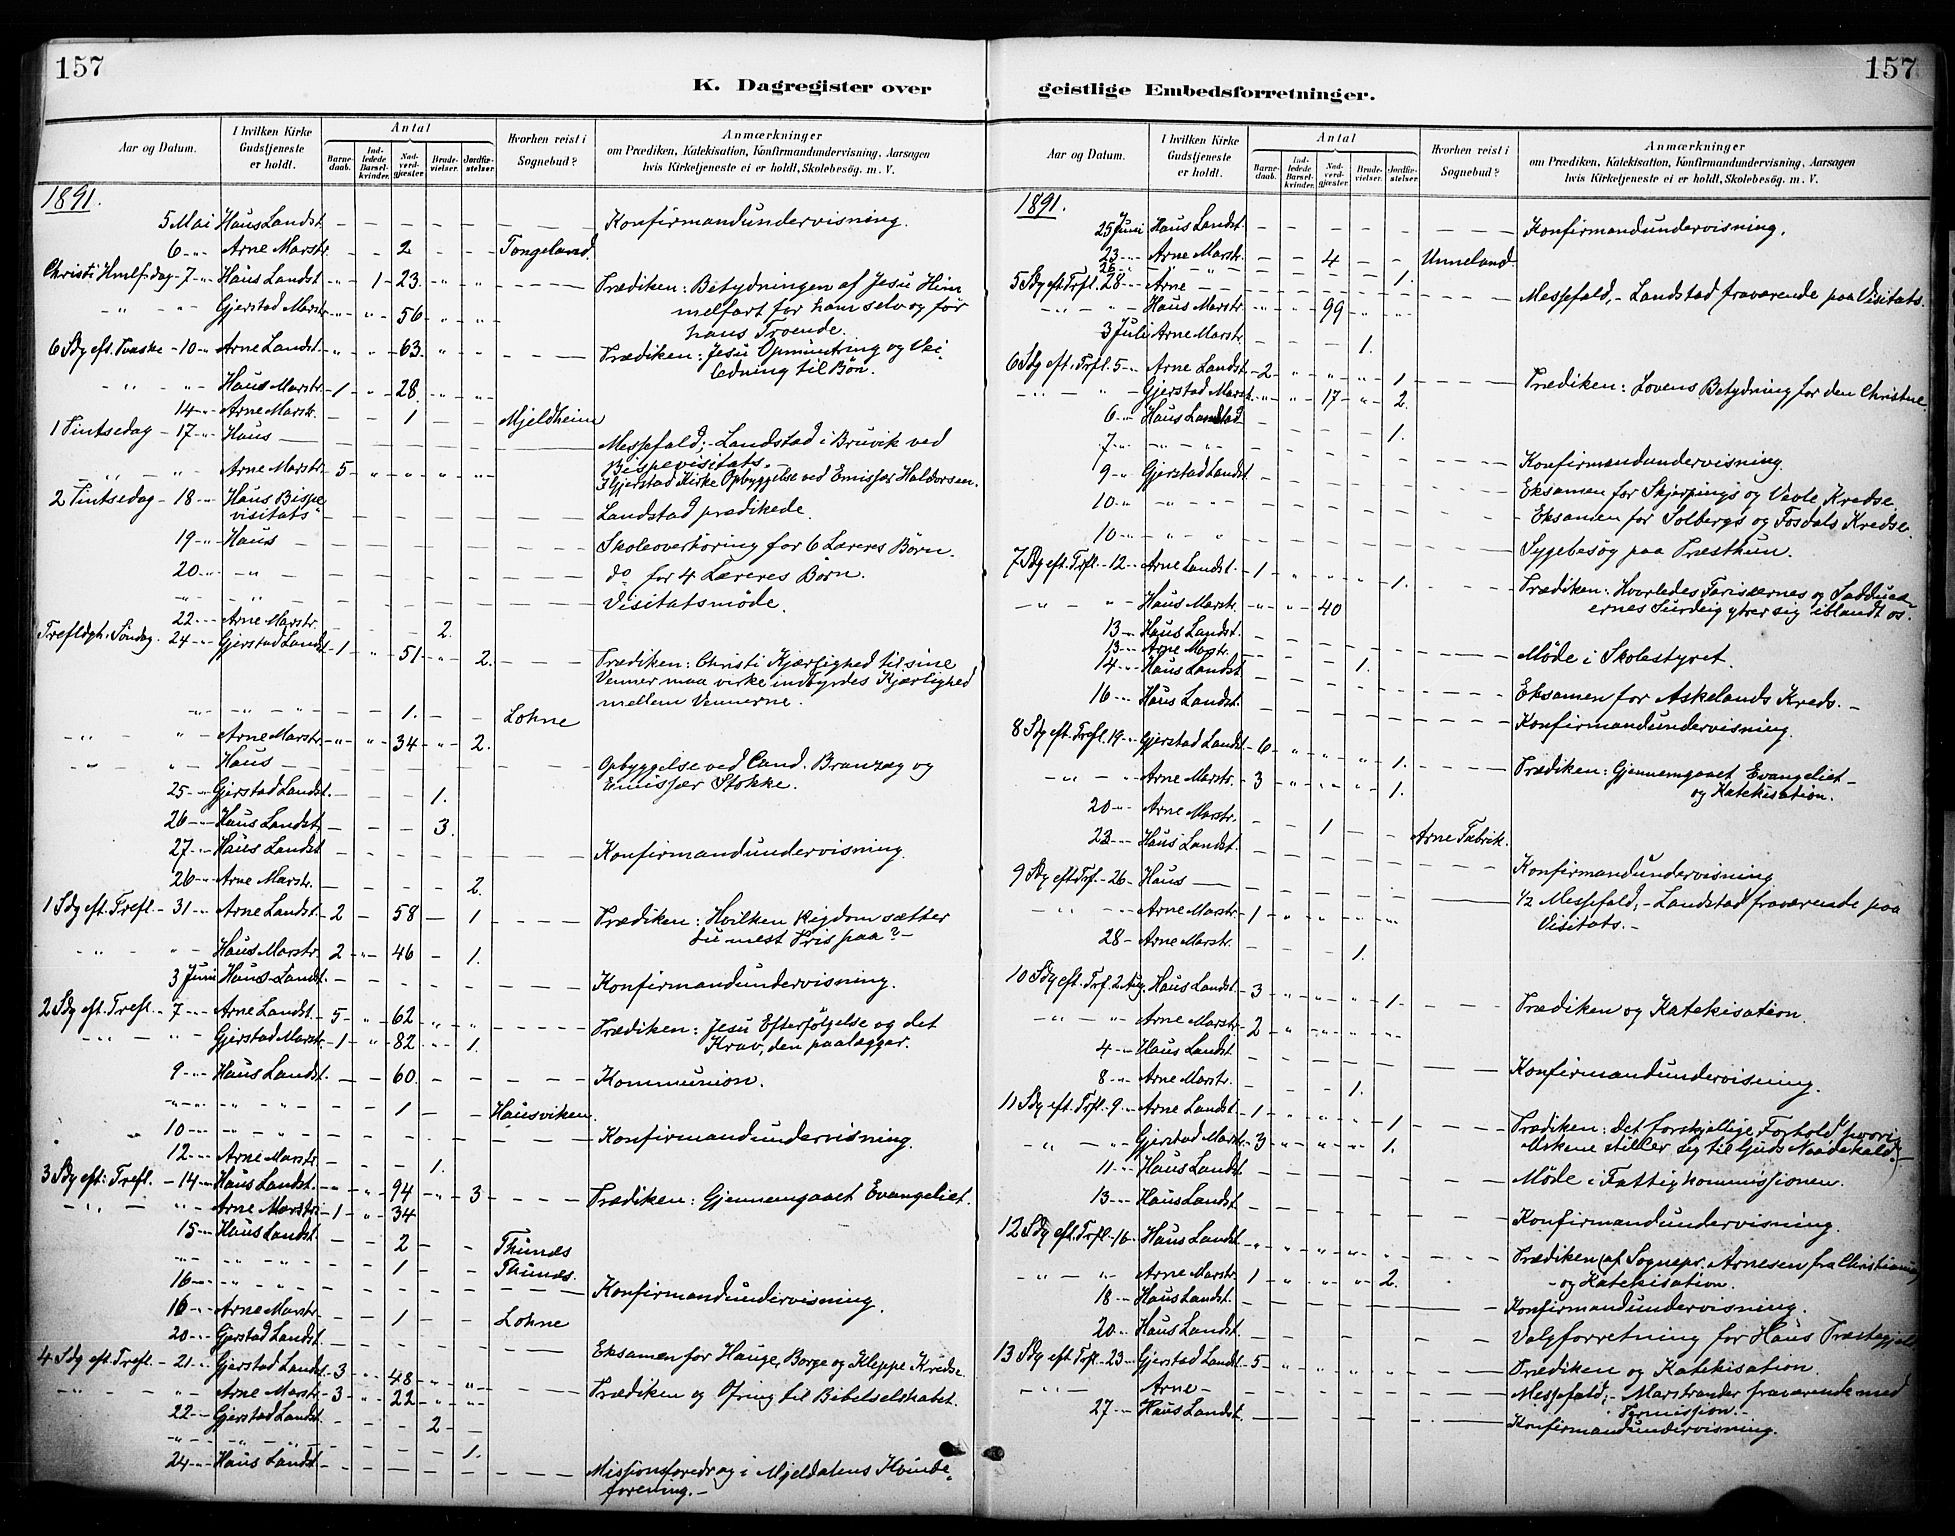 157
K. Dagregister over
Aar og Datum.
I hvilken Kirke Gudstjeneste er holdt.
Antal
Barnedaab.
Indledede Barselkvinder.
Nadverdgjester
Brudevielser.
Jordfæstelser.
Hvorhen reist i Sognebud?
Anmærkninger
om Prædiken, Katekisation, Konfirmandundervisning, Aarsagen
hvis Kirketjeneste ei er holdt, Skolebesøg. m. V.
1891.
5 Mai Haus Landst. – – – – – Konfirmandundervisning.
6 -"- Arne Marstr. – – 2 – – Tongeland.
Christi Hmlf.dag - 7 -"- Haus Landst. " 1 23. " " – – – Prædiken: Betydningen af Jesu Him
melfart for ham selv og for
hans Troende.
-"- -"- Gjerstad Marstr. " " 56 " "
6 Sdg eft. Paaske - 10 -"- Arne Landst. " " 63. " " – – – Prædiken: Jesu Opmuntring og Vei-
ledning til Bøn.
-"- -"- Haus Marstr. 1 " 28. " "
14 -"- Arne Marstr. – – 1 – – Mjeldheim
1 Pintsedag - 17 -"- Haus – Messefald; - Landstad i Bruvik ved
Bispevisitats.
-"- -"- Arne Marstr. 5 " " " " I Gjerstad Kirke Opbyggelse ved Emissær Haldorsen.
2 Pintsedag - 18 -"- Haus Bispe
visitats" – – – – – Landstad prædikede.
19 -"- Haus – – – – – – Skoleoverhøring for 6 Læreres Børn.
20 -"- -"- – – – – – – do for 4 Læreres Børn.
-"- -"- – – – – – Visitatsmøde.
22 -"- Arne Marstr. – – – 2.
Trefldgh. Søndag. 24 -"- Gjerstad Landst. 1 " 51 " 2. – – – Prædiken: Christi Kjærlighed til sine
Venner maa virke indbyrdes Kjærlighed
mellem Vennerne.
-"- -"- – – 1. – – Lohne
-"- -"- Arne Marstr. " " 34 " 2.
-"- -"- Haus – – – – – – Opbyggelse ved Cand. Branzæg og
Emissær Stokke.
25 -"- Gjerstad Landst. – – – 1.
26 -"- Haus Landst. – – – 3.
27 -"- Haus Landst. – – – – – Konfirmandundervisning.
26 -"- Arne Marstr. – – – – 2.
1 Sdg eft. Trefl. - 31 -"- Arne Landst. 2 – 58 – 1 – – – Prædiken: Hvilken Rigdom sætter
Du mest Pris paa? –
-"- -"- Haus Marstr. 2 " 46 – 1.
3 Juni Haus Landst. – – – – – Konfirmandundervisning.
2 Sdg eft. Trefl. - 7 -"- Arne Landst. 5 " 62 " " – – – Prædiken: Jesu Efterfølgelse og det
Krav, den paalægger.
-"- -"- Gjerstad Marstr. 1 " 82 " 1.
9 -"- Haus Landst. – – 60. – – – – – Kommunion.
-"- -"- – – 1 – – Hausviken.
10 -"- -"- – – – – – – Konfirmandundervisning.
12 -"- Arne Marstr. – – – 1.
3 Sdg eft. Trefl. - 14 -"- Haus Landst. " " 94 " 3 – – – Prædiken: Gjennemgaaet Evangeliet.
-"- -"- Arne Marstr. 1 " 34
15 -"- Haus Landst. – – 2 – – Thunæs
-"- -"- – – 1 – – Thunæs.
16 -"- -"- – – – – – Konfirmandundervisning.
16 -"- Arne Marstr. – – 1 – – Lohne
20 -"- Gjerstad Landst. – – – – – Eksamen for Hauge, Borge og Kleppe Kredse
4 Sdg eft. Trefl. - 21 -"- Gjerstad Landst. 3 " 48 " " – – – Prædiken og Ofring til Bibelselskabet.
-"- -"- Arne Marstr. 3 " 22 " "
22 -"- Gjerstad Landst. – – – 2 –
-"- -"- – – – – 1.
24 -"- Haus Landst. – – – – – Missionsforedrag i Mjeldalens Kvinde-
forening. –
157
geistlige Embedsforretninger.
Aar og Datum.
I hvilken Kirke Gudstjeneste er holdt.
Antal
Barnedaab.
Indledede Barselkvinder.
Nadverdgjester
Brudevielser.
Jordfæstelser.
Hvorhen reist i Sognebud?
Anmærkninger
om Prædiken, Katekisation, Konfirmandundervisning, Aarsagen
hvis Kirketjeneste ei er holdt, Skolebesøg. m. V.
1891.
25 Juni Haus Landst. – – – – – Konfirmandundervisning.
23 -"- Arne Marstr. – – 4 – – Unneland.
26 -"- -"- – – – – 1.
5 Sdg eft. Trfl. 28 -"- Arne – – – – – Messefald, - Landstad fraværende paa Visitats.
-"- -"- Haus Marstr. " " 99 " "
3 Juli Arne Marstr. – – – 1.
6 Sdg eft. Trfl. 5 -"- Arne Landst. 2 " " " 1. – – – Prædiken: Lovens Betydning for den Christne
-"- -"- Gjerstad Marstr. " " 17 " 2.
6 -"- Haus Landstad – – – – 1.
7 -"- -"- – – – – – Konfirmandundervisning
9 -"- Gjerstad Landst. – – – – – Eksamen for Skjerpings og Vevle Kredse
10 -"- -"- – – – – – Eksamen for Solbergs og Fosdals Kredse.
10 -"- -"- – – – – – Sygebesøg paa Præsthun.
7 Sdg eft. Trfl. - 12 -"- Arne Landst. 1 " " " 1. – – – Prædiken: Hvorledes Farisæernes og Sadducæ-
ernes Surdeig ytrer sig iblandt os.
-"- -"- Haus Marstr. " " 40
13 -"- Haus Landst. – – – – – Møde i Skolestyret.
13 -"- Arne Mstr. – – – 1.
14 -"- Haus Landst. – – – – – Eksamen for Askelands Kreds. –
16 -"- Haus Landst. – – – – – Konfirmandundervisning.
8 Sdg eft. Trefl. 19 -"- Gjerstad Landst. 6 " " " 1. – – – Prædiken: Gjennemgaaet Evangeliet –
og Katekisation.
-"- -"- Arne Marstr. 3 " " " 1.
20 -"- Arne Marstr. – – 1 – – Arne Fabrik.
23 -"- Haus Landst. – – – – – Konfirmandundervisning
9 Sdg eft Trf. - 26 -"- Haus – – – – – – 1/2 Messefald, - Landstad fraværende paa
Visitats. –
-"- -"- Arne Marstr. 1 " " " "
28 - Arne Marstr. – – – 1.
10 Sdg eft. Trf. 2 Aug. Haus Landst. 3 " " " 1. – – – Prædiken og Katekisation.
-"- -"- Arne Marstr. 2 " " " "
4 -"- Haus Landst. – – – – – Konfirmandundervisning.
8 -"- Arne Marstr. – – – 1.
11 Sdg eft. Trfl. - 9 -"- Arne Landst. 1 " " " 1. – – – Prædiken: Det forskjellige Forhold hvori
Mskene stiller sig til Guds Naadekald. –
-"- -"- Gjerstad Marstr. 3 " " " 1.
11 -"- Haus Landst. – – – – – Møde i Fattigkommissionen.
13 -"- Haus Landst. – – – – – Konfirmandundervisning.
12 Sdg eft. Trfl. - 16 -"- Haus Landst. " " " " – – – Prædiken (af Sognepr. Arnesen fra Christiania)
– og Katekisation.
-"- -"- Arne Marstr. 1 " " " 2.
18 -"- Haus Landst. – – – – – Konfirmandundervisning.
20 -"- Haus Landst. – – – – – Valgforretning for Haus Præstegjeld
13 Sdg eft. Trfl. - 23 -"- Gjerstad Landst. 5 " " " " Prædiken og Katekisation.
-"- Arne – Messefald; - Marstrander fraværende med
Permission. –
27 -"- Haus Landst. – – – – Konfirmandundervisning.